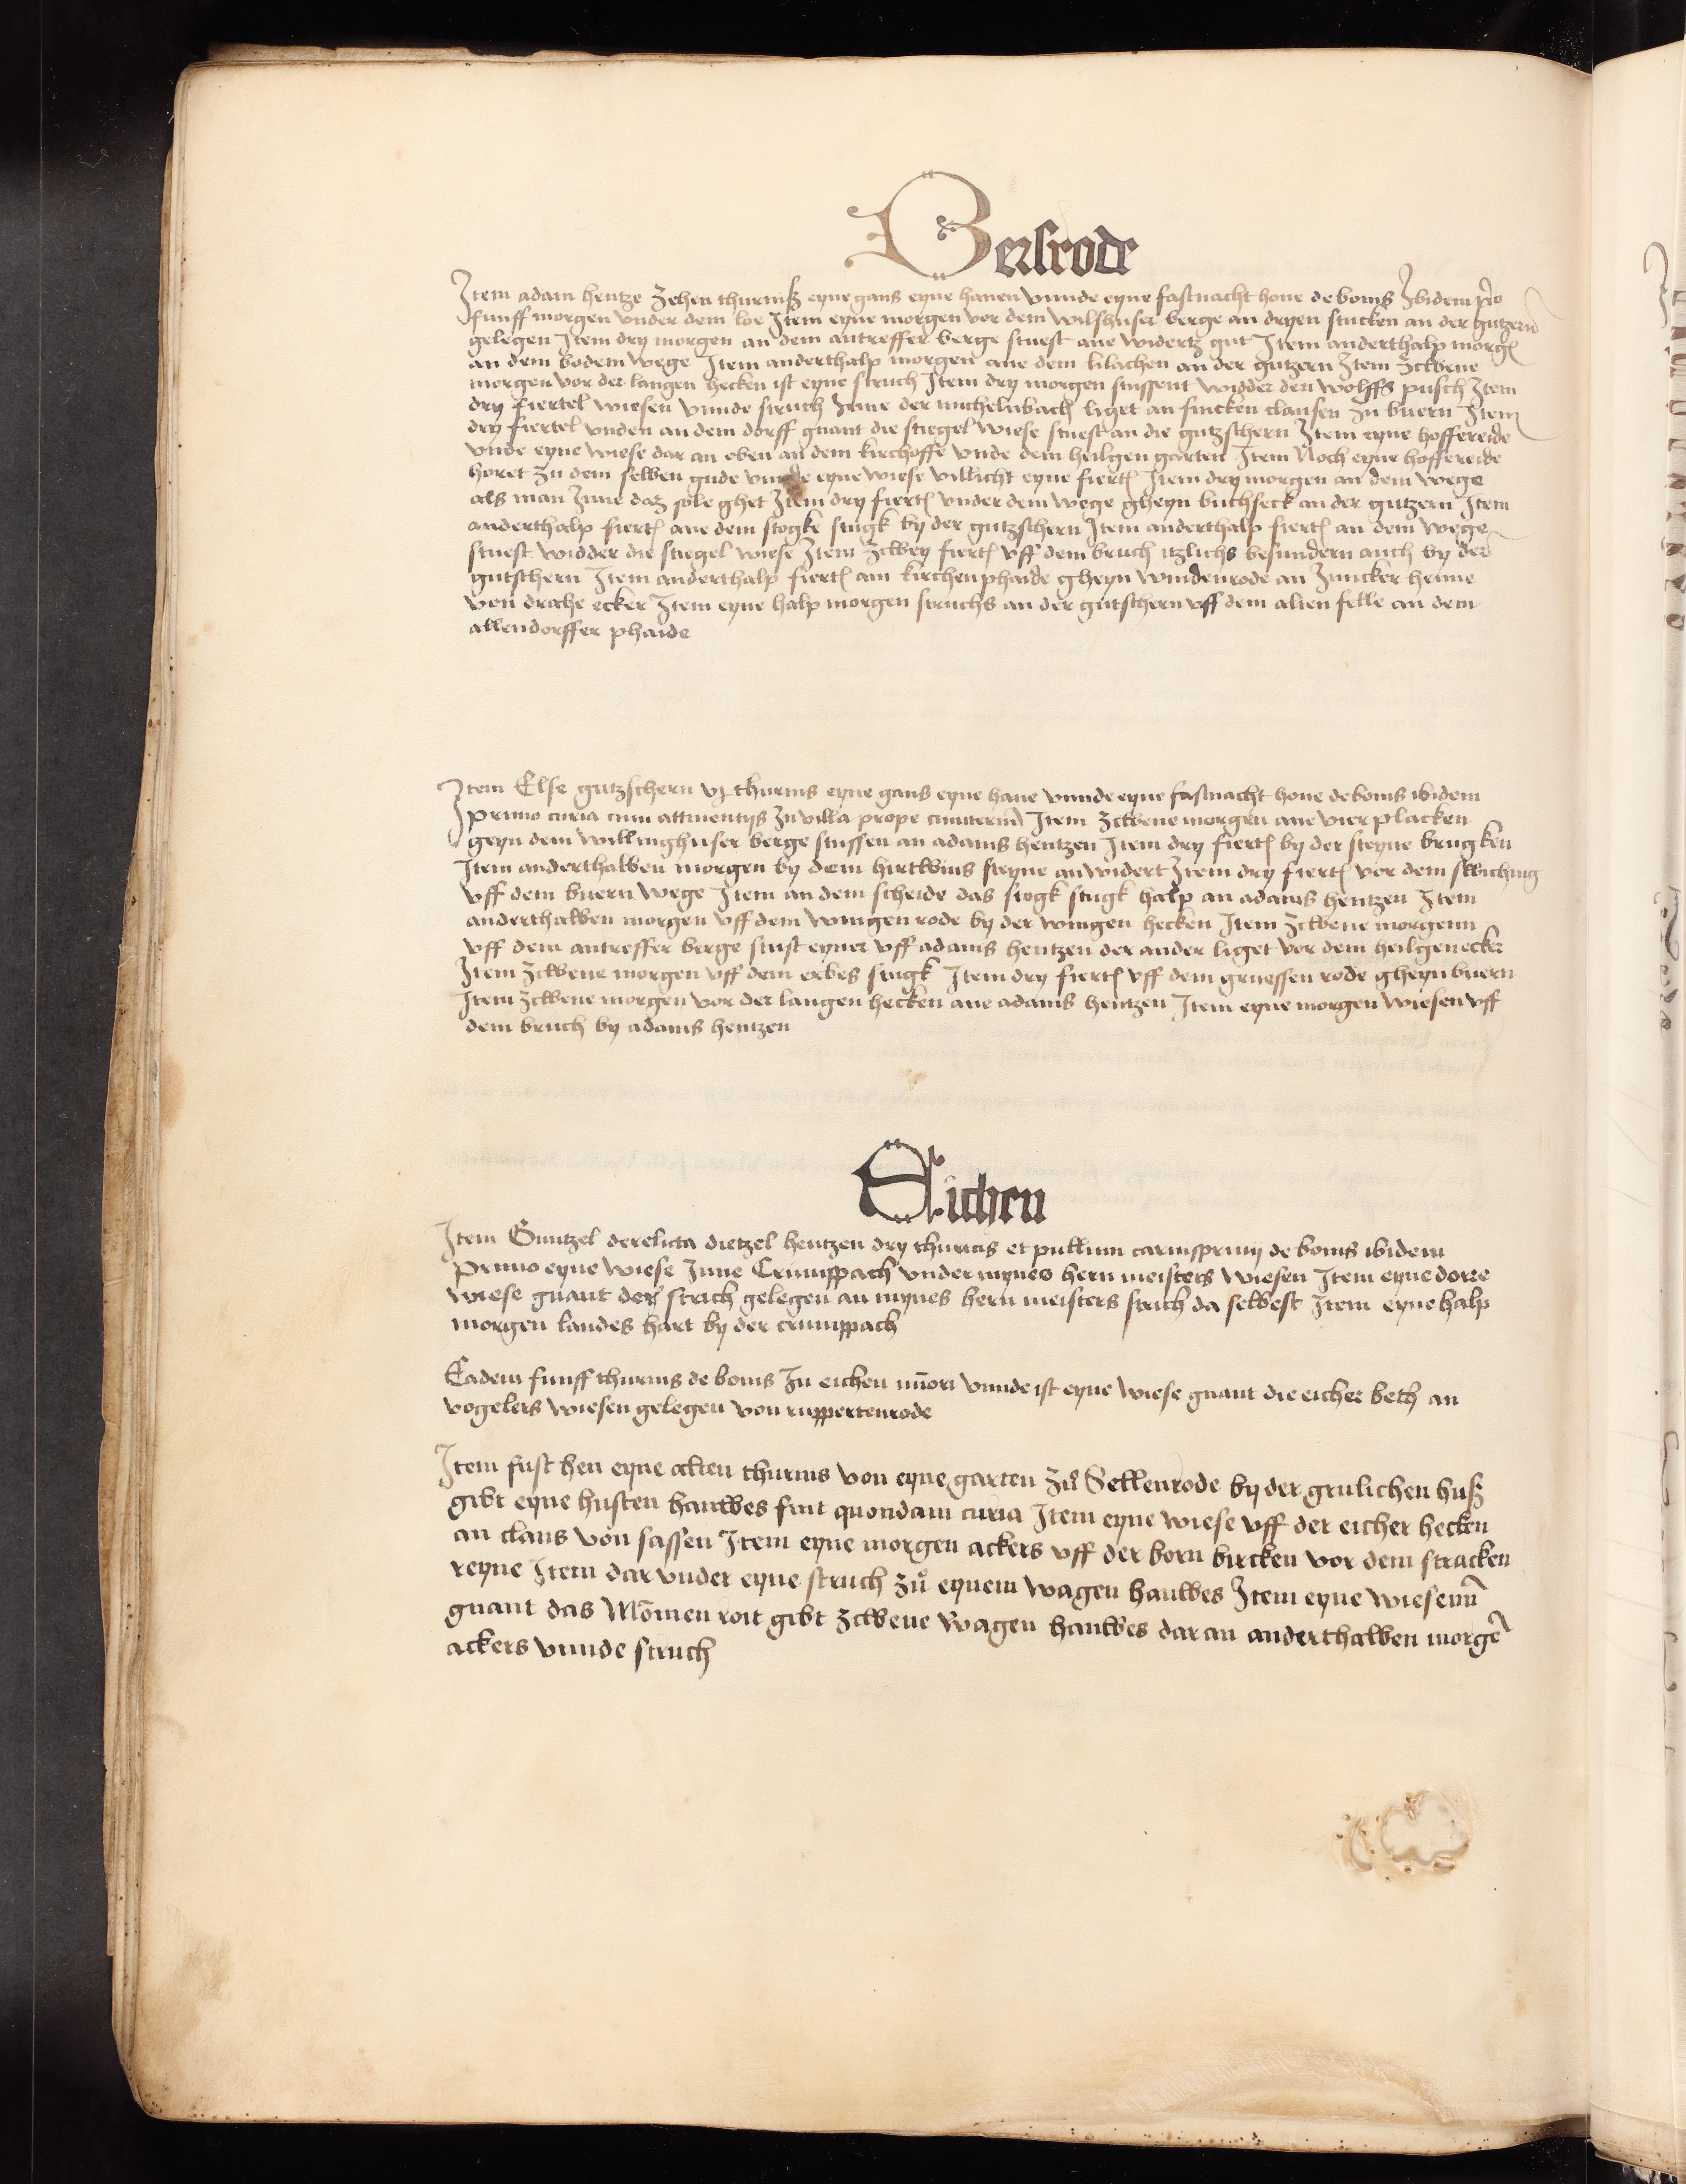 Bersrode
Item adam hentze zehen thurniß eyne gans eyne hanen vnnde eyne fastnacht hone de bonis Ibidem p̄o
funff morgen vnder dem loe Item eyne morgen vor dem wilshuser berge an dryen stucken an der gutzern
gelegen Item dry morgen an dem antreffer berge stuest ane widertz gut Item anderthalp morgē
an dem bodem wege Item anderthalp morgen ane dem lilachen an der gutzern Item zcwene
morgen vor der langen hecken ist eyne struch Item dry morgen stussent widder den wolffs pusch Item
dry fiertel wiesen vnnde struch Inne der michelnbach liget an fincken clausen zu buern Item
dry fiertel vnden an dem dorff gnant die stiegel wiese stuest an die gutzschern Item eyne hoffereide
vnde eyne wiese dar an eben an dem kirchoffe vnde dem heilgen garten Item Noch eyne hoffereide
horet zu dem selben gude vnnde eyne wiese villicht eyne fierteł Item dry morgen an dem wege
als man Inne daz sole ghet Item dry fierteł vnder dem wege gheyn buchseck an der gutzern Item
anderthalp fierteł ane dem stogke stugk by der gutzschern Item anderthalp fierteł an dem wege
stuest widder die stiegel wiese Item zcwey fierteł vff dem bruch itzlichs besundern auch by der
gutschern Item anderthalp fierteł am kirchen phaide gheyn windenrode an Juncker henne
von drahe ecker Item eyne halp morgen struchs an der gutschern vff dem alten felle an dem
allendorffer phaide
Item Else gutzschern vj thurnis eyne gans eyne hane vnnde eyne fastnacht hone de bonis ibidem
primo curia cum attinentijs zu villa prope cimiteriū Item zcwene morgen ane vier placken
geyn dem willinghuser berge stussen an adams hentzen Item dry fierteł by der steyne brugken
Item anderthalben morgen by dem hirtwins steyne an widert Item dry fierteł vor dem slbiching
vff dem buern wege Item an dem scheide das stogk stugk halp an adams hentzen Item
anderthalben morgen vff dem wingen rode by der wingen hecken Item zcwene morgenn
vff dem antreffer berge stust eyner vff adams hentzen der ander liget vor dem heilgen ecker
Item zcwene morgen vff dem erbes stugk Item dry fierteł vff dem gruessen rode gheyn buern
Item zcwene morgen vor der langen hecken ane adams hentzen Item eyne morgen wiesen vff
dem bruch by adams hentzen
Eichen
Item Guntzel derelicta dietzel hentzen dry thurnis et pullum carnispriuij de bonis ibidem
Primo eyne wiese Inne Crumppach vnder mynes hern meisters wiesen Item eyne dorre
wiese gnant der strich gelegen an mynes hern meisters strich da selbest Item eyne halp
morgen landes hart by der crumppach
Eadem funff thurnis de bonis zu eichen mīori vnnde ist eyne wiese gnant die eicher beth an
vogelers wiesen gelegen von ruppertenrode
Item fust hen eyne alten thurnis von eyne garten zů Sellenrode by der grulichen huß
gibt eyne husten hauwes fuit quondam curia Item eyne wiese vff der eicher hecken
an claus von sassen Item eyne morgen ackers vff der born bircken vor dem stracken
reyne Item dar vnder eyne struch zů eynem wagen hauwes Item eyne wiesenn
gnant das Mōmen roit gibt zcwene wagen hauwes dar an anderthalben morgē
ackers vnnde struch